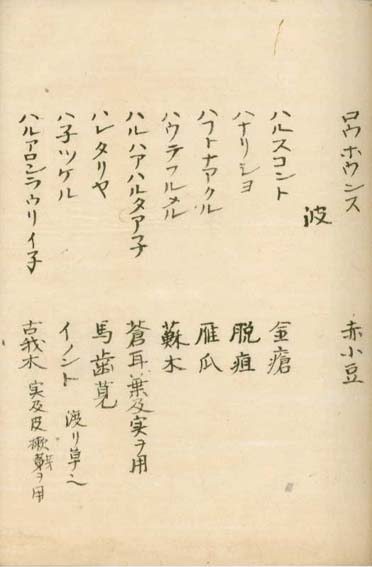 ロウホウンス 赤小豆
波
ハルスコント 金瘡
ハナリシヨ 脱疽
ハフトナアクル 雁瓜
ハウテフルメル 蘇木
ハルハアハルタア子 蒼耳葉及実ヲ用
ハレタリヤ 馬歯莧
ハ子ツケル イノント 渡リ草ヘ
ハルアロンフウリイ子 古我木 実及皮